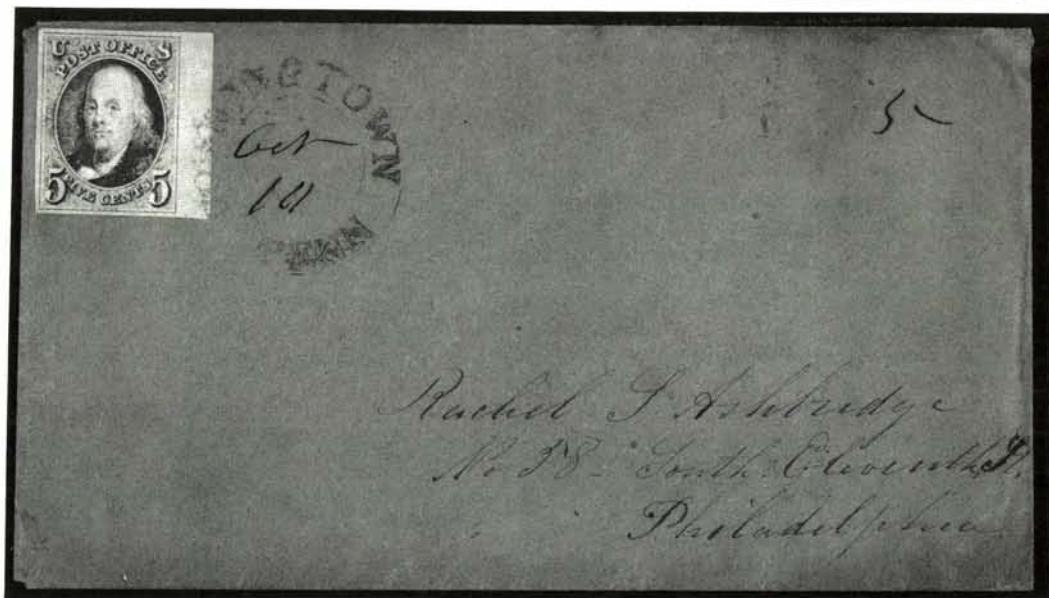 U S
POST OFFICE
5 FIVE CENTS 5
INGTOWN
PENN
Oct
5
Rachel S Ashbridge
No 58 South Eleventh St.
Philadelphia